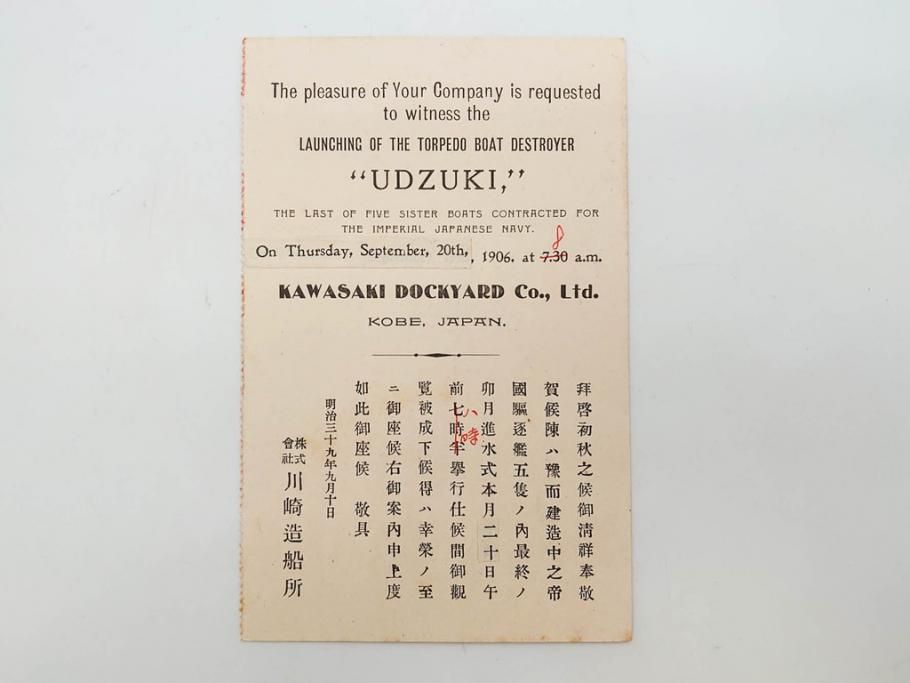 The pleasure of Your Company is requested
to witness the
LAUNCHING OF THE TORPEDO BOAT DESTROYER
“UDZUKI,”
THE LAST OF FIVE SISTER BOATS CONTRACTED FOR
THE IMPERIAL JAPANESE NAVY.
On Thursday, September, 20th, , 1906. at 7.30 8 a.m.
KAWASAKI DOCKYARD Co., Ltd.
KOBE, JAPAN.
拜啓初秋之候御淸祥奉敬
賀候陳ハ豫而建造中之帝
國驅逐艦五隻ノ內最終ノ
卯月進水式本月二十日午
前七時半擧行仕候間御觀
八時
覽被成下候得ハ幸榮ノ至
ニ御座候右御案內申上度
如此御座候 敬具
明治三十九年九月十日
株式會社川崎造船所